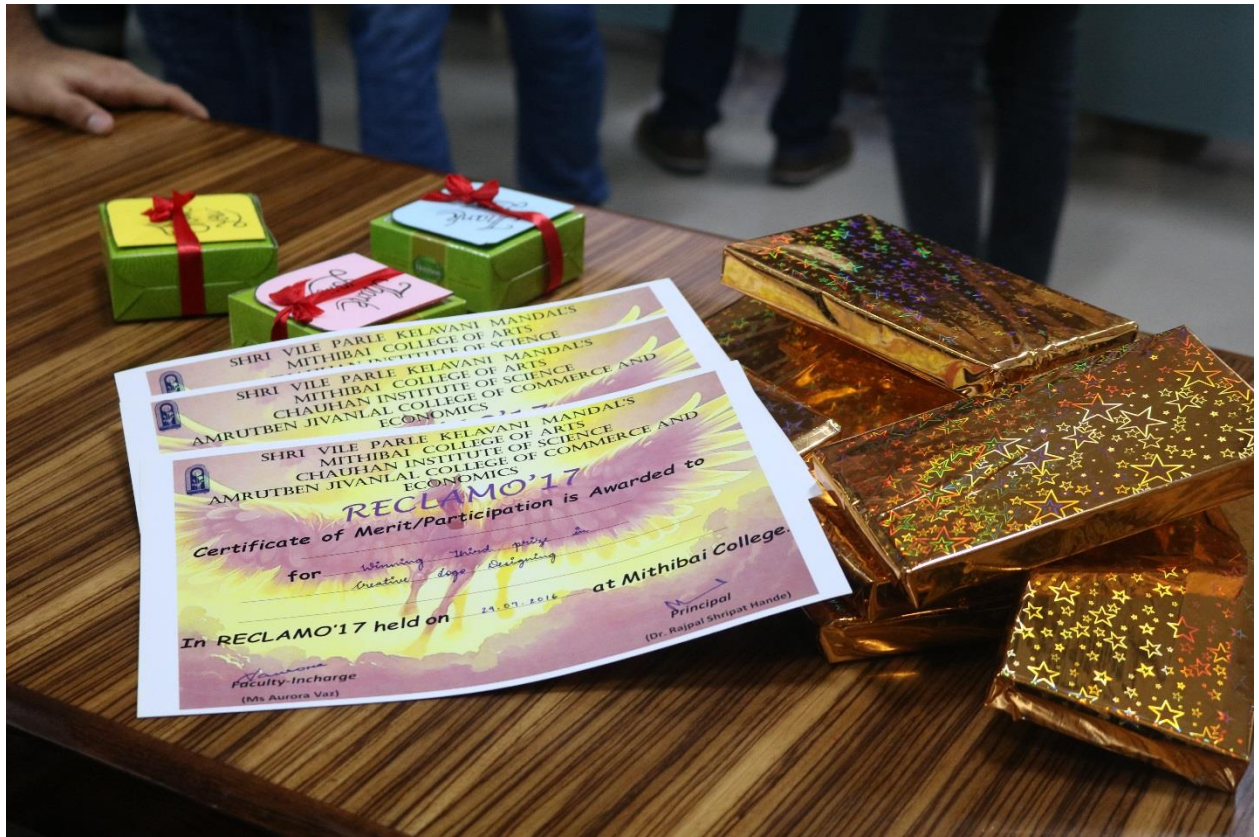 Thank
You
Thank
Thank
You
SHRI VILE PARLE KELAVANI MANDAL'S
MITHIBAI COLLEGE OF ARTS
INSTITUTE OF SCIENCE
SHRI VILE PARLE KELAVANI MANDAL'S
MITHIBAI COLLEGE OF ARTS
CHAUHAN INSTITUTE OF SCIENCE
AMRUTBEN JIVANLAL COLLEGE OF COMMERCE AND
ECONOMICS
SHRI VILE PARLE KELAVANI MANDAL'S
MITHIBAI COLLEGE OF ARTS
CHAUHAN INSTITUTE OF SCIENCE
AMRUTBEN JIVANLAL COLLEGE OF COMMERCE AND
ECONOMICS
RECLAMO'17
Certificate of Merit/Participation is Awarded to
for winning third prize in
Creative logo Designing
In RECLAMO'17 held on 29.07.2016 at Mithibai College.
Faculty-Incharge
(Ms Aurora Vaz)
Principal
(Dr. Rajpal Shripat Hande)